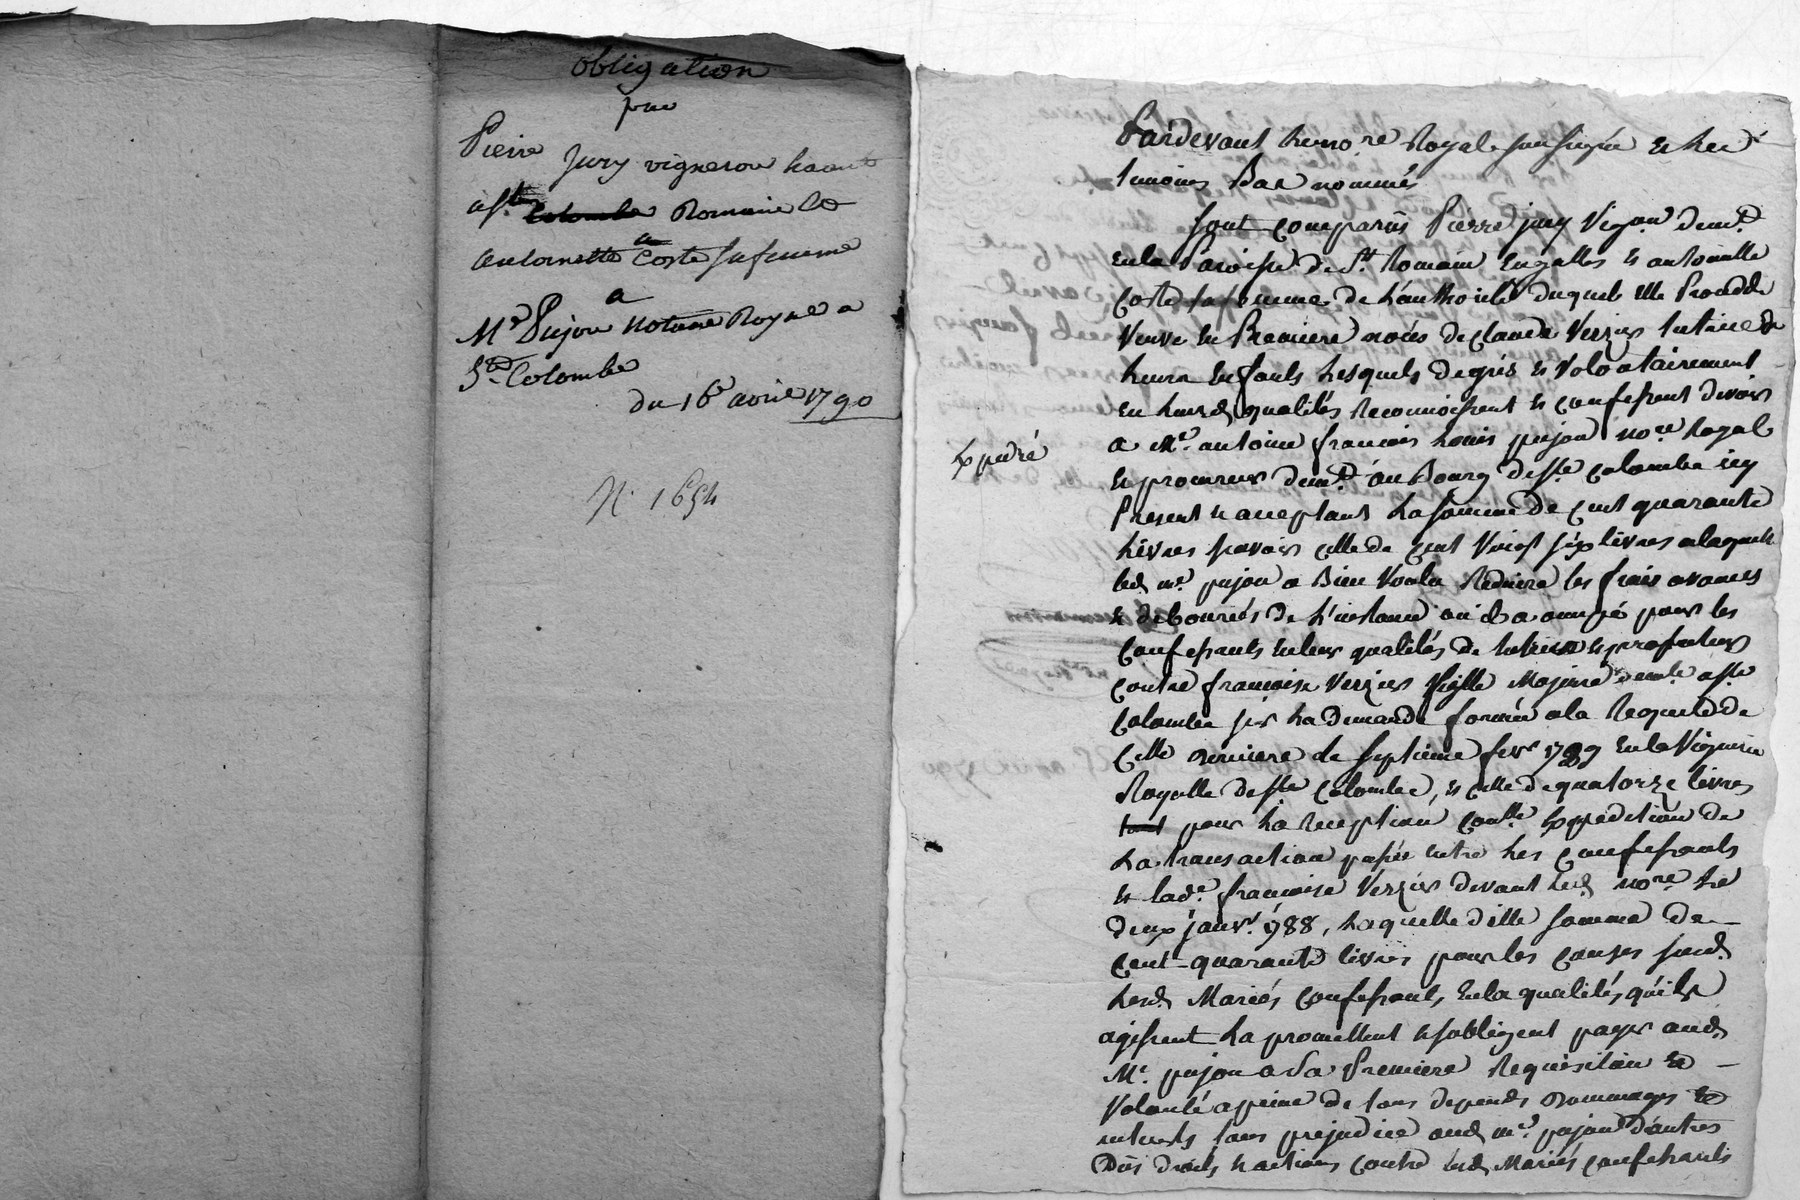 obligation
par
Pierre Jury vigneron habitt
a st. Colombe Romain et
antoinette Coste sa femme
a
Me Pujon Notaire Royal a
Ste Colombe
du 16 avril 1790
N. 1654
Pardevant le no.re Royal soussigné et les
temoins Bas nommés
sont comparûs Pierre jury Vig.on dem.t
en la Paroisse de St. Romain en galles et antoinette
Coste sa femme de L'authorité duquel elle Procedde
Veuve en Premiere noces de claude Verzier tutrice de
leurs Enfants Lesquels de gré et Volontairement
en leurs d. qualités Reconnoissent et confessent devoir
a Me. antoine francois Louis pujon no.re Royal
Expedié
et procureur dem.t au Bourg de ste. Colombe icy
Present et acceptant La somme de Cent quarante
Livres savoir celle de Cent Vingt six livres a laquelle
led. me. pujon a Bien Voulu Reduire les frais avances
et debourcés de L'instance qu'il a occupé pour les
Confessants en leurs qualités de tutrice et protuteur
Contre francoise Verzier fille Majeure dem.te a ste
Colombe sur La demande formée a la Requete de
Cette derniere le septieme fev.r 1789 en la Viguerie
Royalle de ste Colombe, et celle de quatorze livres
tant pour La reception Con.lle Expedition de
La transaction passée entre Les Confessants
et lad.e francoise Verzier devant led. no.re Le
deux janv.r 1788, Laquelle ditte somme de
Cent quarante livres pour les Causes susd.
Lesd. Mariés Confessants, en la qualités, qu'ils
agissent La promettent et s'obligent payer aud.
Me. pujon a Sa Premiere Requisition et
Volonté a peine de tous depends dommages et
interets sans prejudice aud. me. pujon d'autres
Dûs droits et actions Contre lesd. Mariés Confessants